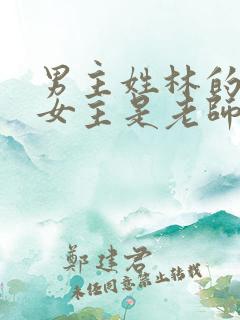 男主姓林的
女主是老師
鄭建君
未经同意禁止转载